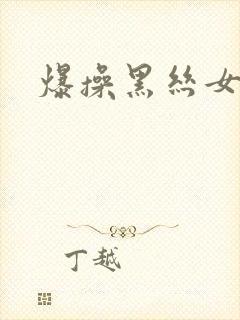 爆操黑丝女
丁越